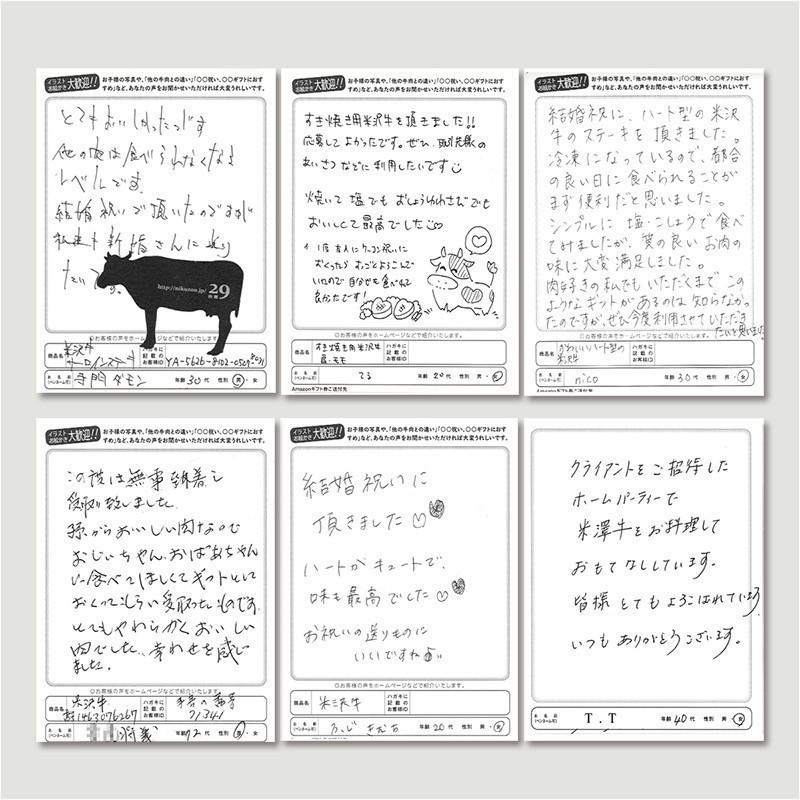 イラストお絵かき大歓迎!! お子様の写真や、「他の牛肉との違い」「〇〇祝い、〇〇ギフトにおすすめ」など、あなたの声をお聞かせいただければ大変うれしいです。
とてもおいしかったです
他の肉は食べられなくなる
レベルです。
結婚祝いで頂いたのですが
新婚さんに送り
たいです。
http://nikuzou.jp/ 29
◎お客様の声をホームページなどで紹介いたします。
商品名 米沢牛 サーロインステーキ
ハガキに記載のお客様ID YA-5626-8102-0529-8031
お名前(ペンネーム可) 寺門ダモン 年齢 30代 性別 男・女
イラストお絵かき大歓迎!! お子様の写真や、「他の牛肉との違い」「〇〇祝い、〇〇ギフトにおすすめ」など、あなたの声をお聞かせいただければ大変うれしいです。
すき焼き用米沢牛を頂きました!!
応募してよかったです。ぜひ、取引先様の
あいさつなどに利用したいです
焼いて塩でもおしょうゆわさびでも
おいしくて最高でした
おくったらすっごくよろこんで
いたので自分も食べれて
良かったです!
◎お客様の声をホームページなどで紹介いたします。
商品名 すき焼き用米沢牛 肩・モモ
ハガキに記載のお客様ID
お名前(ペンネーム可) てる 年齢 20代 性別 男・女
Amazonギフト券ご送付先
イラストお絵かき大歓迎!! お子様の写真や、「他の牛肉との違い」「〇〇祝い、〇〇ギフトにおすすめ」など、あなたの声をお聞かせいただければ大変うれしいです。
結婚祝に、ハート型の米沢
牛のステーキを頂きました。
冷凍になっているので、都合
の良い日に食べられることが
まず便利だと思いました。
シンプルに塩・こしょうで食べ
てみましたが、質の良いお肉の
味に大変満足しました。
肉好きの私でもいただくまでこの
ようなギフトがあるのは知らなかっ
たのですが、ぜひ今度利用させていただき
たいと思いました
◎お客様の声をホームページなどで紹介いたします。
商品名 かわいいハート型の米沢牛
ハガキに記載のお客様ID
お名前(ペンネーム可) nico 年齢 30代 性別 男・女
イラストお絵かき大歓迎!! お子様の写真や、「他の牛肉との違い」「〇〇祝い、〇〇ギフトにおすすめ」など、あなたの声をお聞かせいただければ大変うれしいです。
この度は無事到着し
受取り致しました。
孫からおいしい肉なので
おじいちゃん、おばあちゃん
に食べてほしくてギフトとして
おくってもらい受取ったものです。
とてもやわらかくおいしい
肉でした。幸わせを感じ
ました。
◎お客様の声をホームページなどで紹介いたします。
商品名 米沢牛
ハガキに記載のお客様ID 71341
お名前(ペンネーム可) 年齢 72代 性別 男・女
イラストお絵かき大歓迎!! お子様の写真や、「他の牛肉との違い」「〇〇祝い、〇〇ギフトにおすすめ」など、あなたの声をお聞かせいただければ大変うれしいです。
結婚祝いに
頂きました♡
ハートがキュートで、
味も最高でした♡
お祝いの送りものに
いいですね
◎お客様の声をホームページなどで紹介いたします。
商品名 米沢牛
ハガキに記載のお客様ID
お名前(ペンネーム可) 年齢 20代 性別 男・女
クライアントをご招待した
ホームパーティーで
米澤牛をお料理して
おもてなししています。
皆様とてもよろこばれています
いつもありがとうございます。
お名前(ペンネーム可) T.T 年齢 40代 性別 男・女